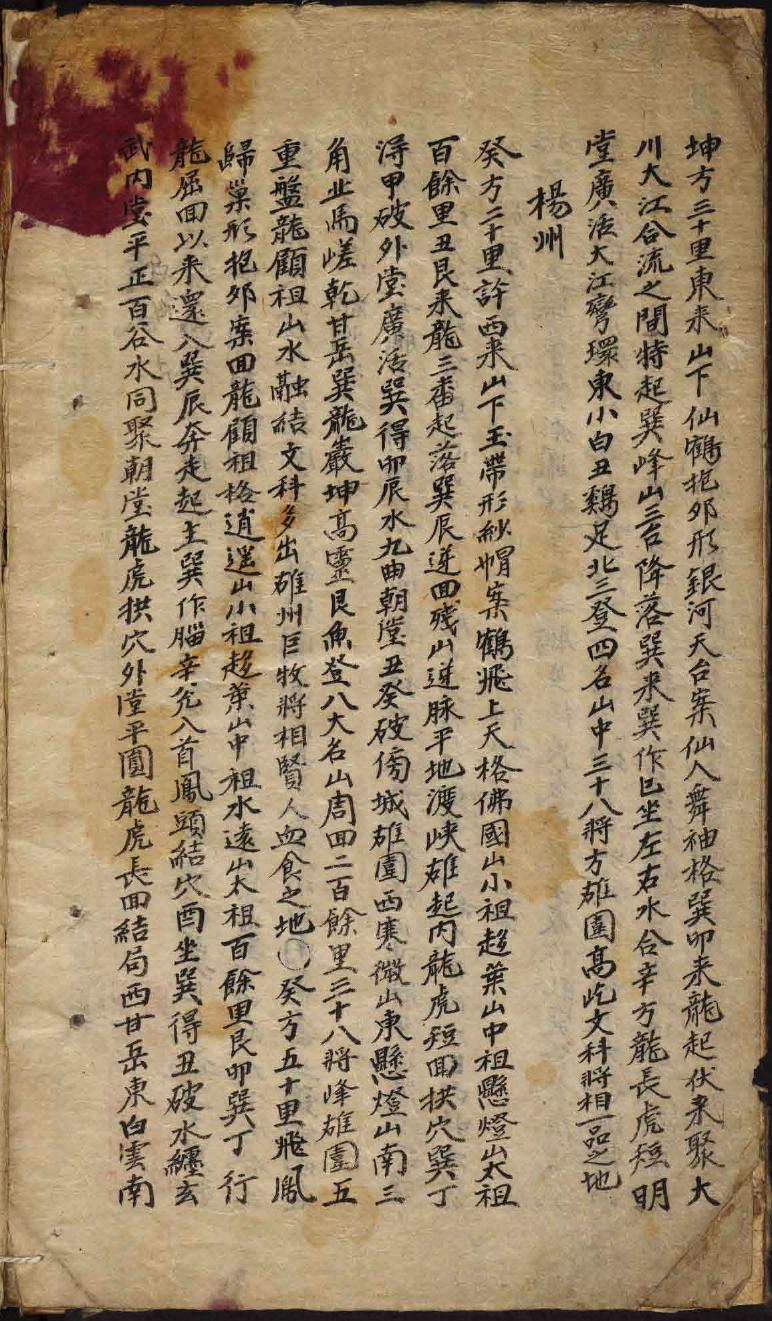 坤方三十里東来山下仙鶴抱卵形銀河天台案仙人舞袖格巽卯来龍起伏来聚大
川大江合流之間特起巽峰山三台降落巽来巽作巳坐左右水合辛方龍長虎短明
堂廣活大江彎環東小白丑鷄足北三登四名山中三十八將方雄圍高屹文科將相一品之地
楊州
癸方二十里許西来山下玉帶形紗帽案鶴飛上天格佛國山小祖趍葉山中祖懸燈山太祖
百餘里丑艮来龍三番起落巽辰逆回殘山逆脉平地渡峽雄起内龍虎短回拱穴巽丁
淂甲破外堂廣活巽得卯辰水九曲朝堂丑癸破傍城雄圍西寒微山東懸燈山南三
角北馬嵯乾甘岳巽龍巖坤髙靈艮魚登八大名山周回二百餘里三十八將峰雄圍五
重盤龍顧祖山水融結文科多出雄州巨牧將相賢人血食之地〇癸方五十里飛鳳
歸巢形抱卵案回龍顧祖格逍遥山小祖趍葉山中祖水遠山太祖百餘里艮卯巽丁行
龍屈回以来還入巽辰奔走起主巽作腦辛兊入首鳳頭結穴酉坐巽得丑破水纏玄
武内堂平正百谷水同聚朝堂龍虎拱穴外堂平圓龍虎長回結局西甘岳東白雲南